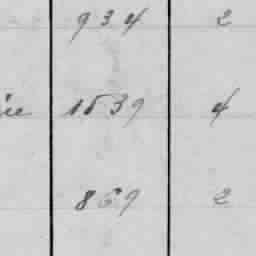 934 2
1539 4
869 2